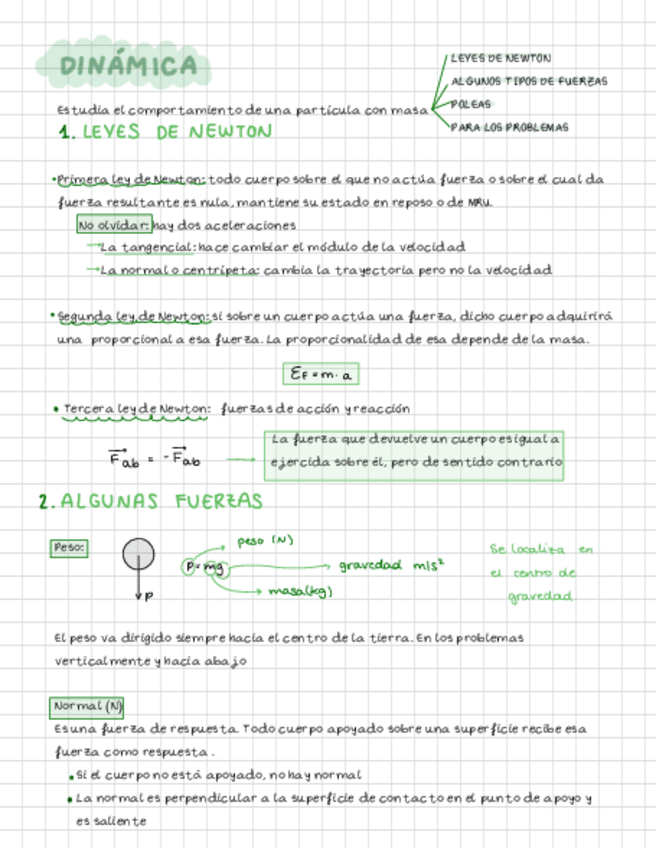 DINÁMICA
LEYES DE NEWTON
ALGUNOS TIPOS DE FUERZAS
POLEAS
PARA LOS PROBLEMAS
Estudia el comportamiento de una partícula con masa
1. LEYES DE NEWTON
•Primera ley de Newton: todo cuerpo sobre el que no actúa fuerza o sobre el cual da
fuerza resultante es nula, mantiene su estado en reposo o de MRU.
No olvidar: hay dos aceleraciones
→La tangencial: hace cambiar el módulo de la velocidad
→La normal o centrípeta: cambia la trayectoria pero no la velocidad
•Segunda ley de Newton: si sobre un cuerpo actúa una fuerza, dicho cuerpo adquirirá
una proporcional a esa fuerza. La proporcionalidad de esa depende de la masa.
ΣF = m · a
• Tercera ley de Newton: fuerzas de acción y reacción
F⃗ab = -F⃗ab
La fuerza que devuelve un cuerpo es igual a
ejercida sobre él, pero de sentido contrario
2. ALGUNAS FUERZAS
Peso:
P
P = mg
peso (N)
gravedad m/s²
masa(kg)
Se localiza en
el centro de
gravedad.
El peso va dirigido siempre hacia el centro de la tierra. En los problemas
verticalmente y hacia abajo
Normal (N)
Es una fuerza de respuesta. Todo cuerpo apoyado sobre una superficie recibe esa
fuerza como respuesta.
•Si el cuerpo no está apoyado, no hay normal
•La normal es perpendicular a la superficie de contacto en el punto de apoyo y
es saliente